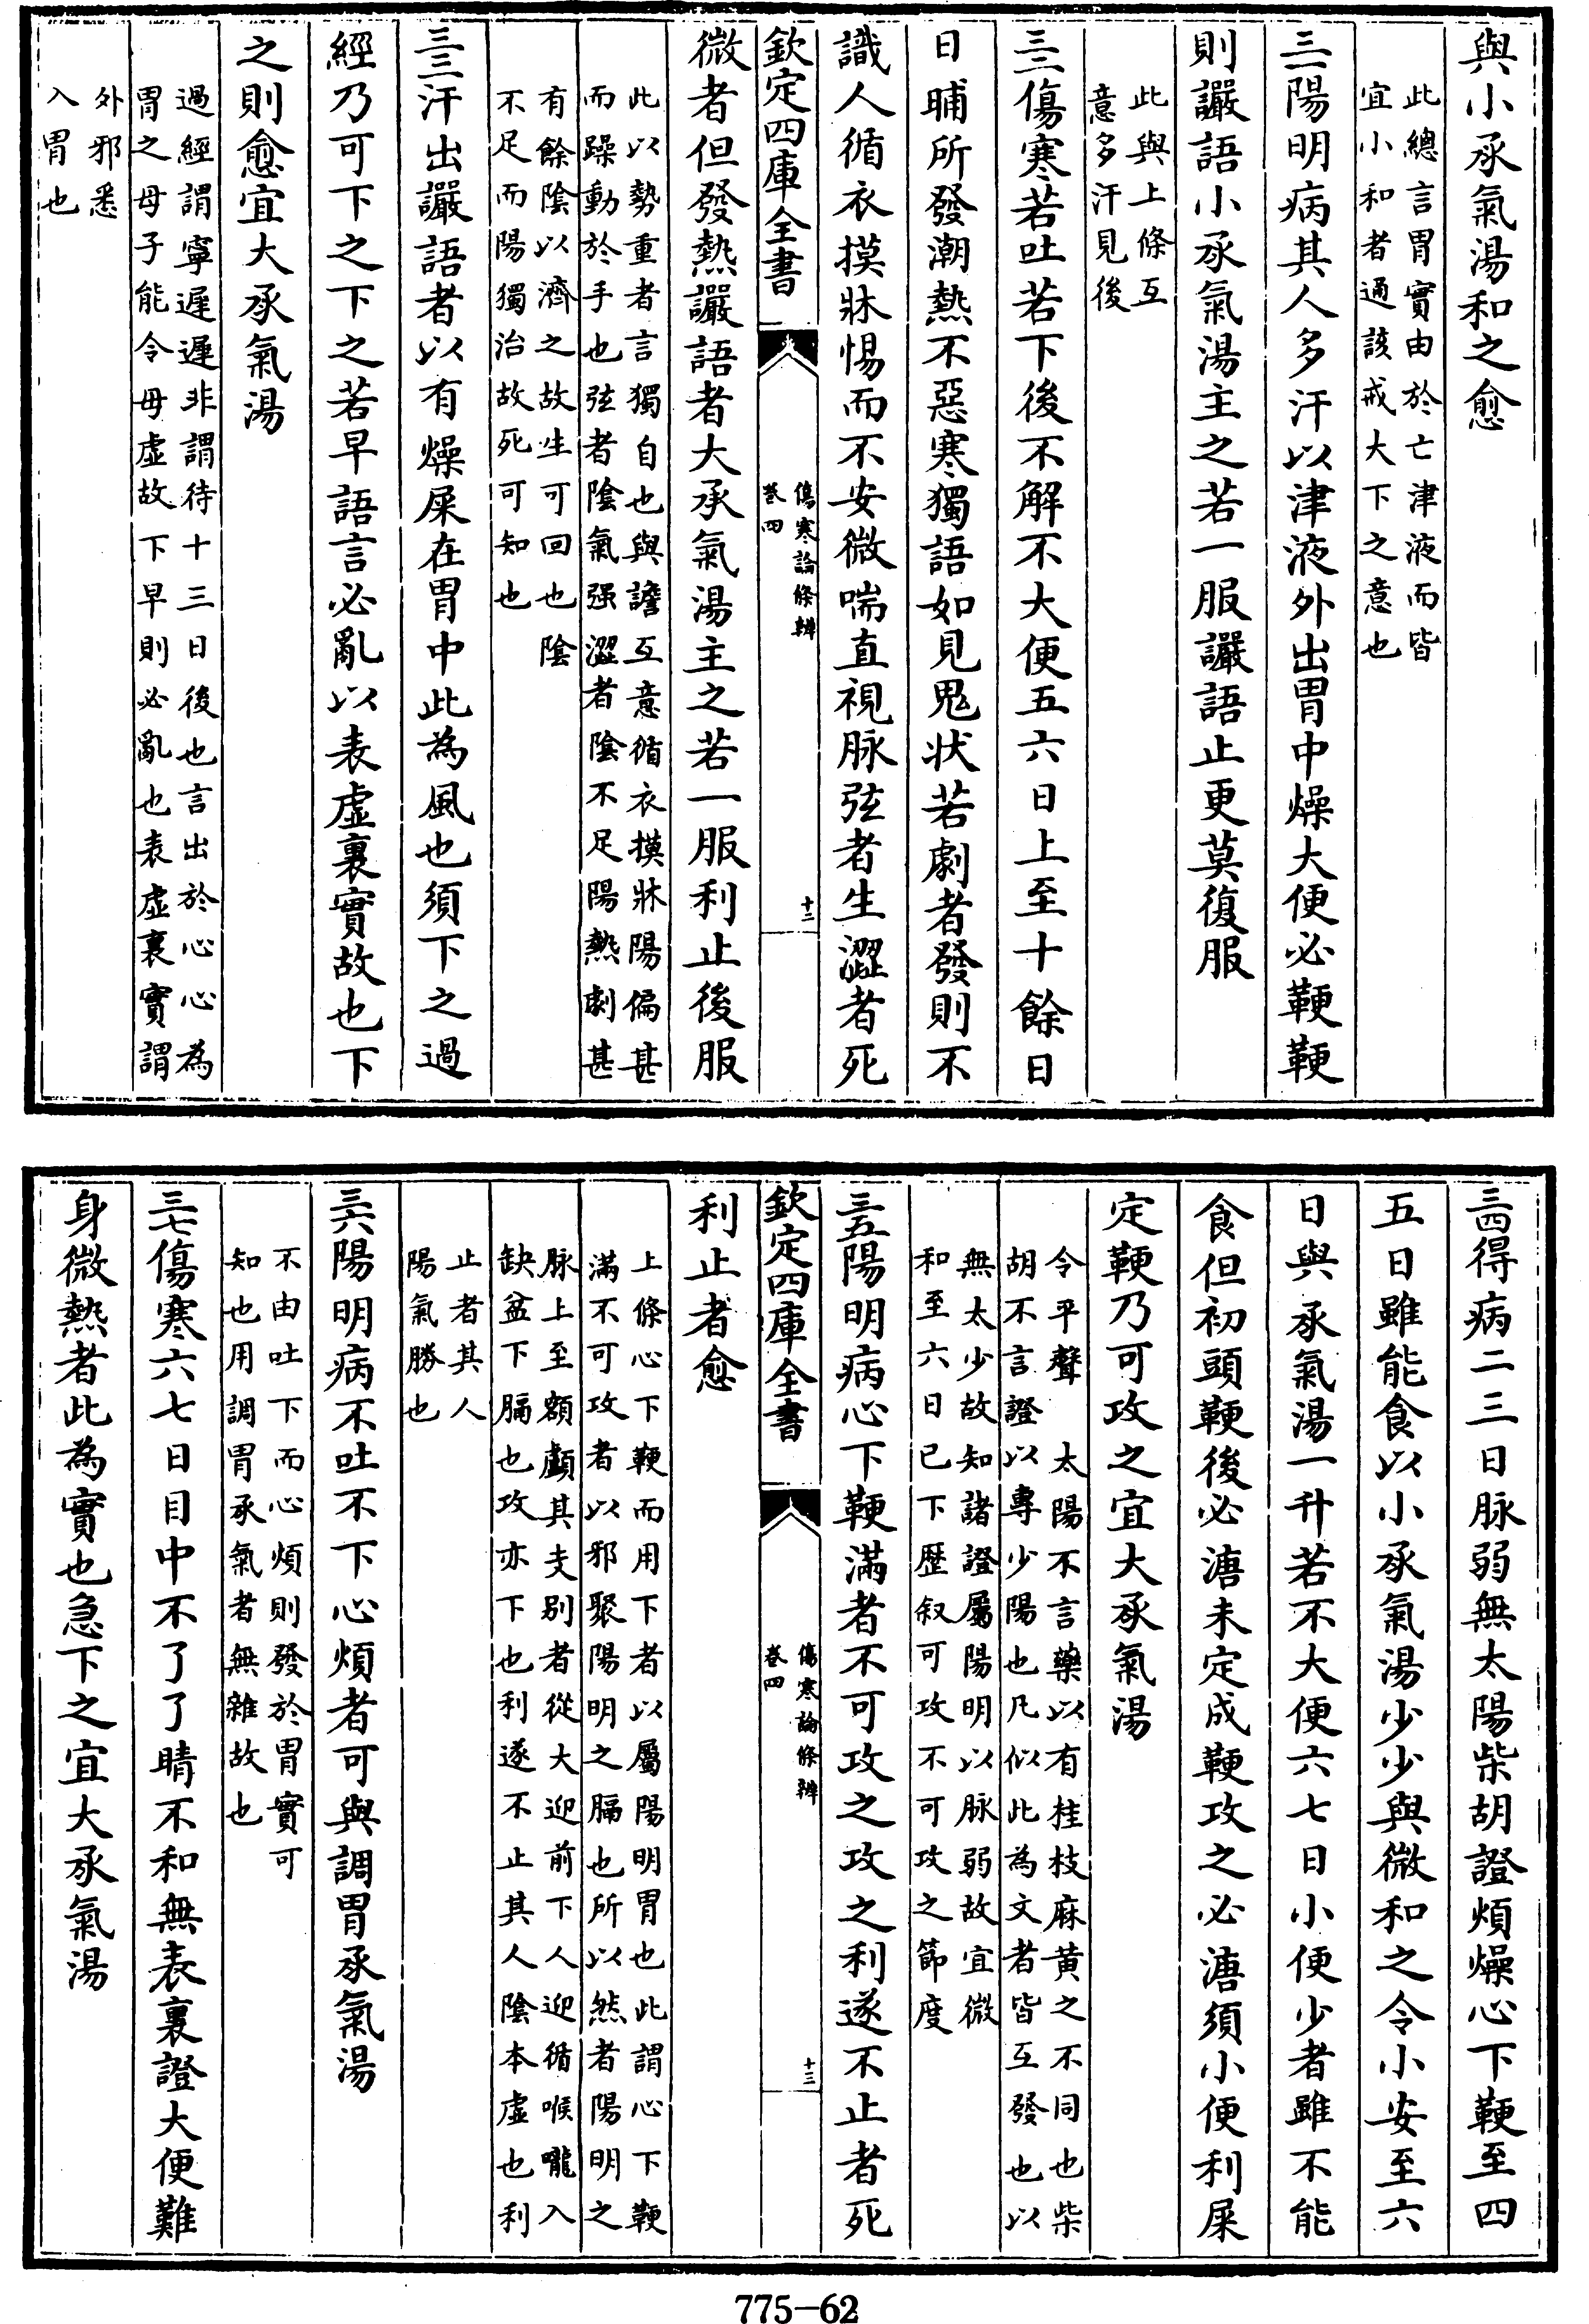 與小承氣湯和之愈
此總言胃實由於亡津液而皆
宜小和者通該戒大下之意也
三一陽明病其人多汗以津液外出胃中燥大便必鞕鞕
則讝語小承氣湯主之若一服讝語止更莫復服
此與上條互
意多汗見後
三二傷寒若吐若下後不解不大便五六日上至十餘日
日晡所發潮熱不惡寒獨語如見鬼狀若劇者發則不
識人循衣摸牀惕而不安微喘直視脉弦者生澀者死
欽定四庫全書
傷寒論條辨
卷四
十二
微者但發熱讝語者大承氣湯主之若一服利止後服
此以勢重者言獨自也與譫互意循衣摸牀陽偏甚
而躁動於手也弦者陰氣强澀者陰不足陽熱劇甚
有餘陰以濟之故生可回也陰
不足而陽獨治故死可知也
三三汗出讝語者以有燥屎在胃中此為風也須下之過
經乃可下之下之若早語言必亂以表虛裏實故也下
之則愈宜大承氣湯
過經謂寧遲遲非謂待十三日後也言出於心心為
胃之母子能令母虛故下早則必亂也表虛裏實謂
外邪悉
入胃也
三四得病二三日脉弱無太陽柴胡證煩燥心下鞕至四
五日雖能食以小承氣湯少少與微和之令小安至六
日與承氣湯一升若不大便六七日小便少者雖不能
食但初頭鞕後必溏未定成鞕攻之必溏須小便利屎
定鞕乃可攻之宜大承氣湯
令平聲 太陽不言藥以有桂枝麻黄之不同也柴
胡不言證以專少陽也凡似此為文者皆互發也以
無太少故知諸證屬陽明以脉弱故宜微
和至六日已下歷叙可攻不可攻之節度
三五陽明病心下鞕滿者不可攻之攻之利遂不止者死
欽定四庫全書
傷寒論條辨
卷四
十三
利止者愈
上條心下鞕而用下者以屬陽明胃也此謂心下鞕
滿不可攻者以邪聚陽明之膈也所以然者陽明之
脉上至額顱其支别者從大迎前下人迎循喉嚨入
缺盆下膈也攻亦下也利遂不止其人陰本虛也利
止者其人
陽氣勝也
三六陽明病不吐不下心煩者可與調胃承氣湯
不由吐下而心煩則發於胃實可
知也用調胃承氣者無雜故也
三七傷寒六七日目中不了了睛不和無表裏證大便難
身微熱者此為實也急下之宜大承氣湯
775-62